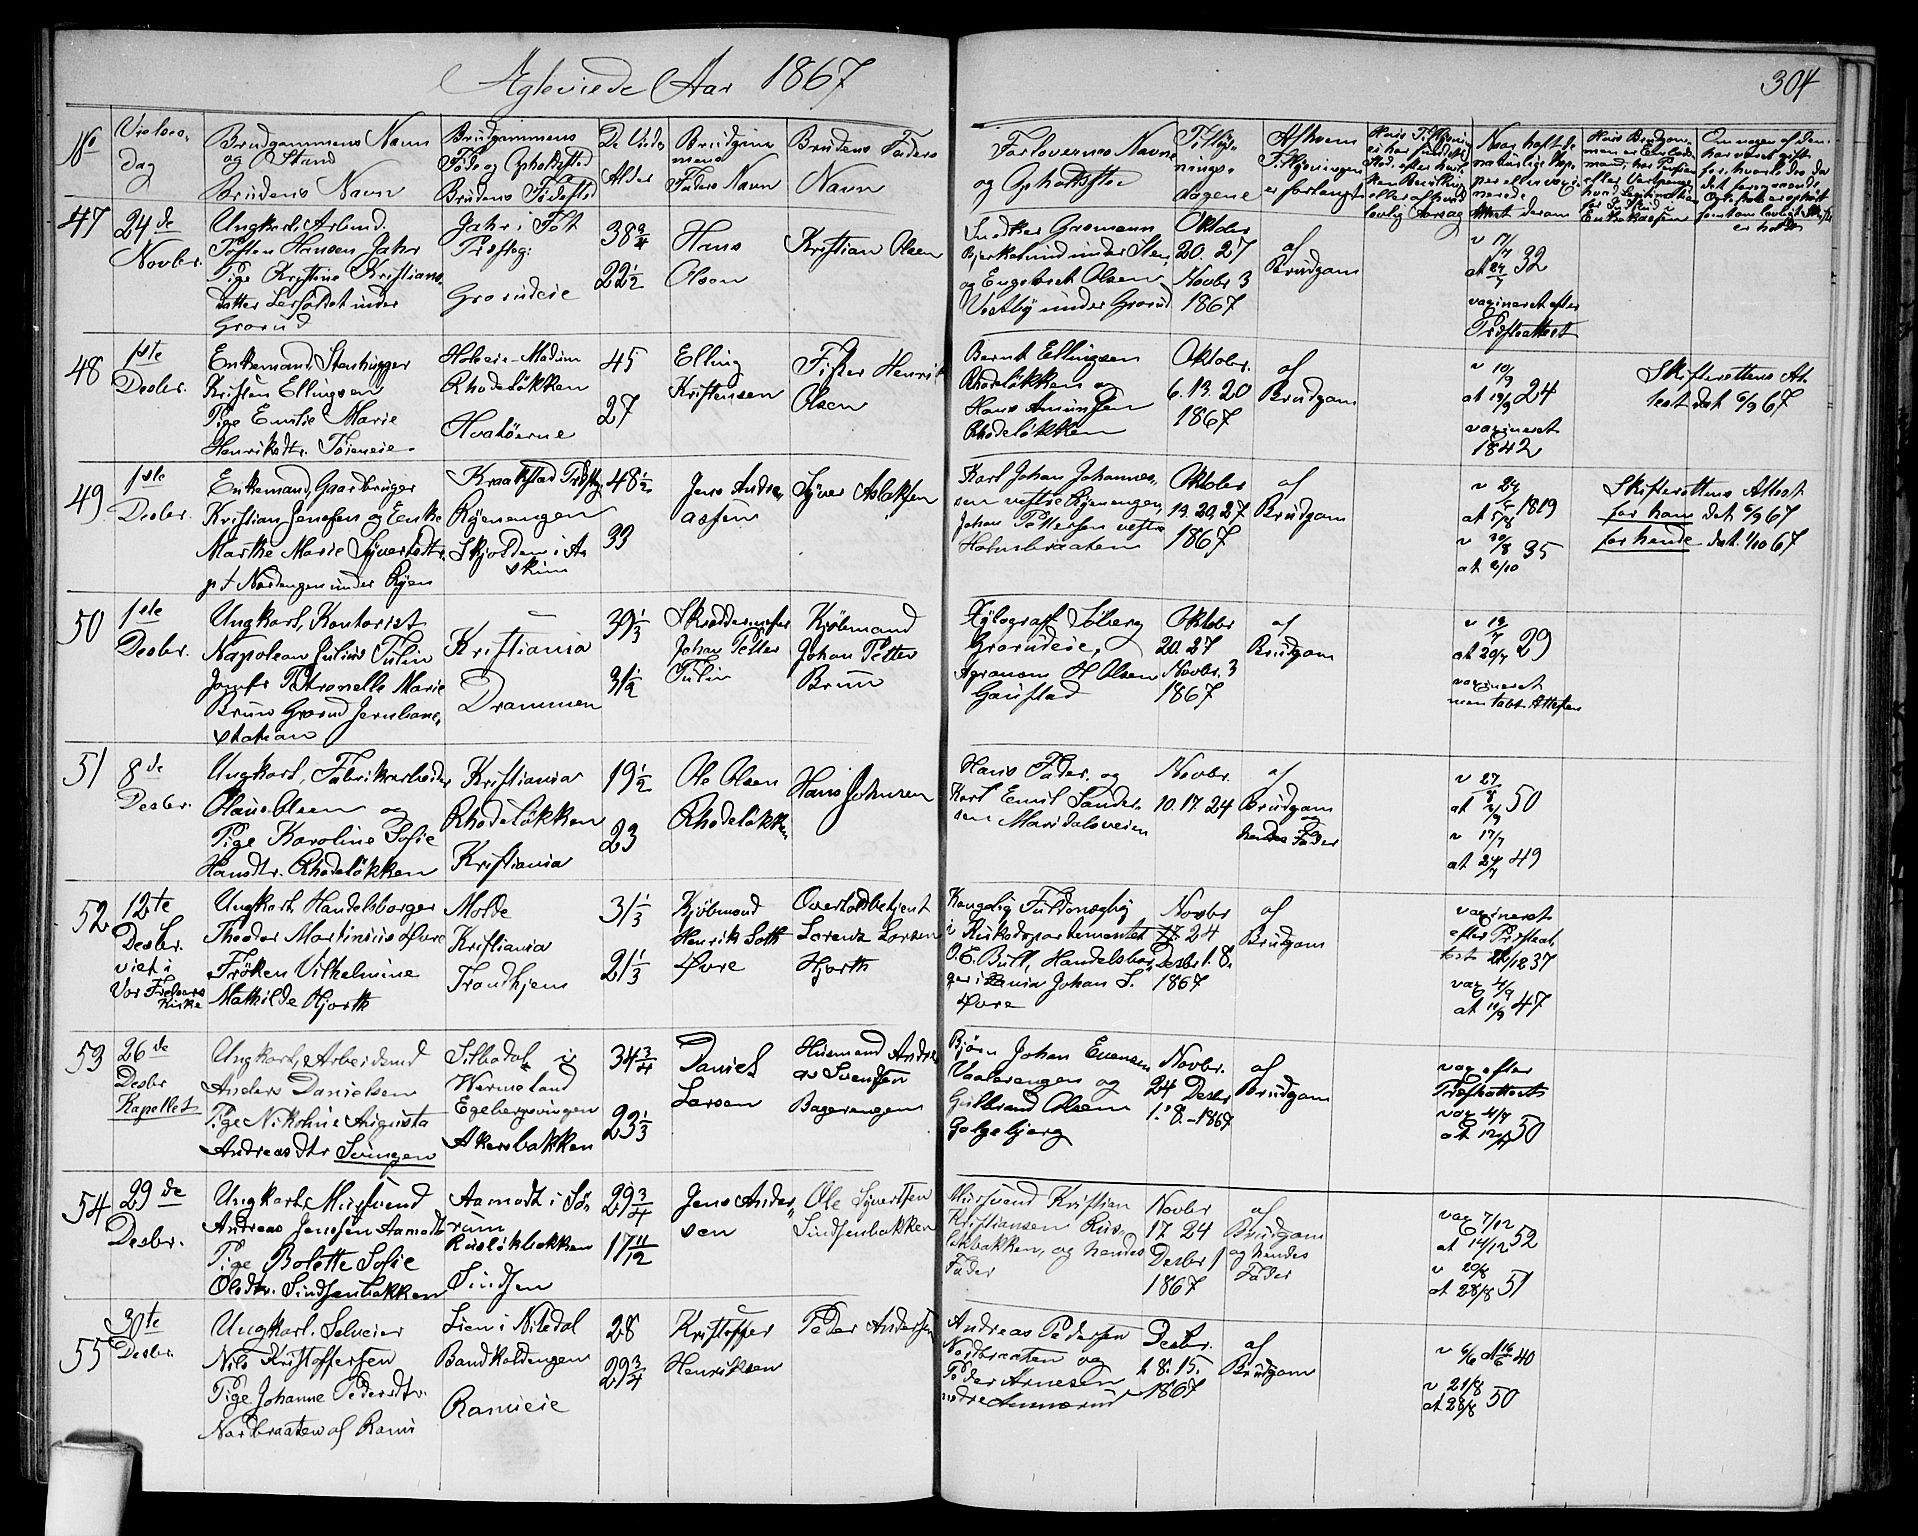 Ægteviede Aar 1867
304
No
Vielses-
dag
Brudgommens Navn
og Stand
Brudens Navn
Brudgommens
Føde og Opholdssted
Brudens Fødested
De Viedes
Alder
Brudgom-
mens
Faders Navn
Brudens Faders
Navn
Forlovernes Navne
og Opholdssted
Tillys-
nings-
dagene
Af hvem
Tillysningen
er forlangt
47
24de
Novbr.
Ungkarl, Arbmd.
Torsten Hansen Jahr
Pige Kristine Kristians-
datter Lerfaldet under
Grorud
Jahr i Tolt
Præsteg:
Grorudeie
38 3/4
22 1/2
Hans
Olsen
Kristian Olsen
Snedker Gasmann
Bjerkelund under Sten,
og Engebret Olsen
Vestby under Grorud
Oktober
20. 27
Novbr. 3
1867
af
Brudgom
v 17/7
at 24/7 32
vaxineret efter
Præsteattest
48
1ste
Desbr.
Enkemand, Stenhugger
Kristen Ellingsen
Pige Emilie Marie
Henriksdtr. Tøieneie
Holeie-Modum
Rhodeløkken
Hvaløerne
45
27
Elling
Kristensen
Fisker Henrik
Olsen
Bernt Ellingsen
Rhodeløkken og
Hans Amundsen
Rhodeløkken
Oktober.
6. 13. 20
1867
af
Brudgom
v 10/9
at 19/9 24
vaxineret
1842
Skifterettens At-
test dat 6/9 67
49
1ste
Desbr.
Enkemand, Gaardbruger
Kristian Jensen og Enke
Marthe Marie Syversdtr.
p. t Nordengen under Ryen
Kraakstad Præsteg
Ryenengen
Skjolden i As-
kim
48 1/2
33
Jens Andre-
assen
Syver Aslaksen
Karl Johan Johannes-
sen vestre Ryenengen,
Johan Pettersen vestre
Holmbraaten
Oktober
13. 20. 27
1867
af
Brudgom
v 27
at 5/8 1819
v 30/8
at 6/10 35
Skifterettens Attest
for ham dat 6/9 67
for hende dat. 1/10 67
50
1ste
Desbr.
Ungkarl, Kontorist
Napoleon Julius Tulin
Jomfr Petronelle Marie
Bruun Grorud Jernbane-
station
Kristiania
Drammen
39 1/3
31 1/2
Skræddermester
Johan Petter
Tulin
Kjøbmand
Johan Petter
Bruun
Xylograf Solberg
Grorudeie,
Agronom H Olsen
Gaustad
Oktobr
20. 27
Novbr. 3
1867
af
Brudgom
v 13/7
at 20/7 29
vaxineret
men tabt Attesten
51
8de
Desbr.
Ungkarl, Fabrikarbeider
Olaus Olsen og
Pige Karoline Sofie
Hansdtr. Rhodeløkken
Kristiania
Rhodeløkken
Kristiania
19 1/2
23
Ole Olsen
Rhodeløkken
Hans Johnsen
Hans Fader. og
Karl Emil Sander-
sen Maridalsveien
Novbr.
10. 17. 24
af
Brudgom
og
hendes Fader
v 27/8
at 4/9 50
v 17/7
at 24/7 49
52
12te
Desbr.
viet i
Vor Frelsers
Kirke
Ungkarl, Handelsborger
Theodor Martinius Øvre
Frøken Vilhelmine
Mathilde Hjorth
Molde
Kristiania
Trondhjem
31 1/3
21 1/3
Kjøbmand
Henrik Soth
Øvre
Overtoldbetjent
Lorenz Larsen
Hjorth
Kongelig Fuldmægtig
i Kirkedepartementet
O. E. Bull, Handelsbor-
ger i Xania Johan S.
Øvre
Novbr
17 24
Desbr 1. 8.
1867
af
Brudgom
vaxineret
efter Præsteat-
test 24/12 37
vax 4/9
at 11/9 47
53
26de
Desbr
Kapellet
Ungkarl, Arbeidsmd
Anders Danielsen
Pige Nikoline Augusta
Andreasdtr Svingen
Silbodal i
Wermeland
Egebergsvingen
Akersbakken
34 3/4
23 1/3
Daniel
Larsen
Husmand Andre-
as Svendsen
Bagerengen
Bjørn Johan Evensen
Vaalerengen og
Gulbrand Olsen
Galgebjerg
Novbr.
24 Desbr
1. 8. - 1867
af
Brudgom
vax efter
Præsteattest
vax 4/7
at 12/7 50
54
29de
Desbr.
Ungkarl, Mursvend
Andreas Jensen Aamodt
Pige Bolette Sofie
Olsdtr. Sindsenbakken
Aamodt i Sø-
rum
Rusløkbakken
Sindsen
29 3/4
17 11/12
Jens Ander-
sen
Ole Syvertsen
Sindsenbakken
Mursvend Kristian
Kristiansen Rus-
løkbakken, og hendes
Fader
Novbr
17 24
Desbr 1
1867
af
Brudgom
og hendes
Fader
vax 7/12
at 14/12 52
v 20/8
at 28/8 51
55
30te
Desbr.
Ungkarl, Selveier
Nils Kristoffersen
Pige Johanne Pedersdtr.
Nordbraaten af Ranu
Lien i Nitedal
Baadkaldengen
Ranueie
28
29 3/4
Kristoffer
Henriksen
Peder Andersen
Andreas Pedersen
Nordbraaten og
Peder Arnesen
nedre Ammerud
Desbr.
1. 8. 15.
1867
af
Brudgom
v 6/6 at 16/6 40
v 21/8
at 28/8 50